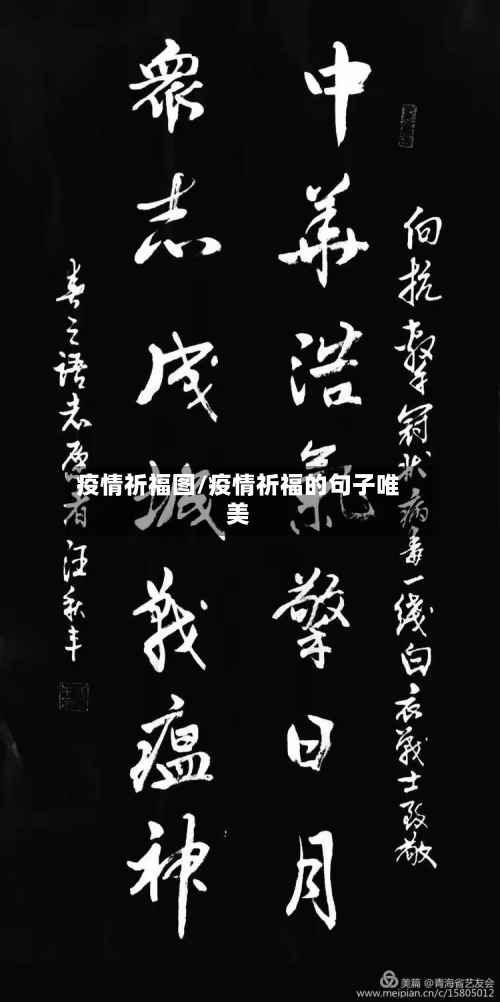 向抗击冠状病毒一线白衣战士致敬
中華浩氣擎日月
眾志成城戰瘟神
春之语志愿者汪秋丰
疫情祈福图/疫情祈福的句子唯
美
美篇 @青海省艺友会
www.meipian.cn/c/15805012